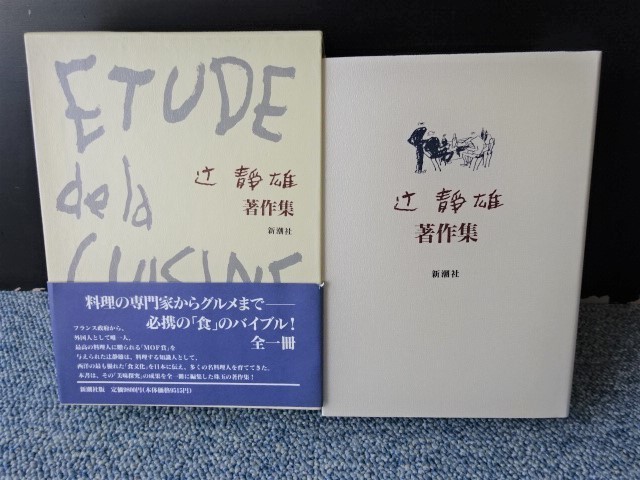 ETUDE
de la
CUISINE
辻 靜雄
著作集
新潮社
料理の専門家からグルメまで——
必携の「食」のバイブル!
全一冊
フランス政府から、
外国人として唯一人、
最高の料理人に贈られる「MOF賞」を
与えられた辻静雄は、料理する知識人として、
西洋の最も優れた「食文化」を日本に伝え、多くの名料理人を育ててきた。
本書は、その「美味探究」の成果を全一冊に編集した珠玉の著作集!
新潮社版 定価9800円(本体価格9515円)
辻 靜雄
著作集
新潮社